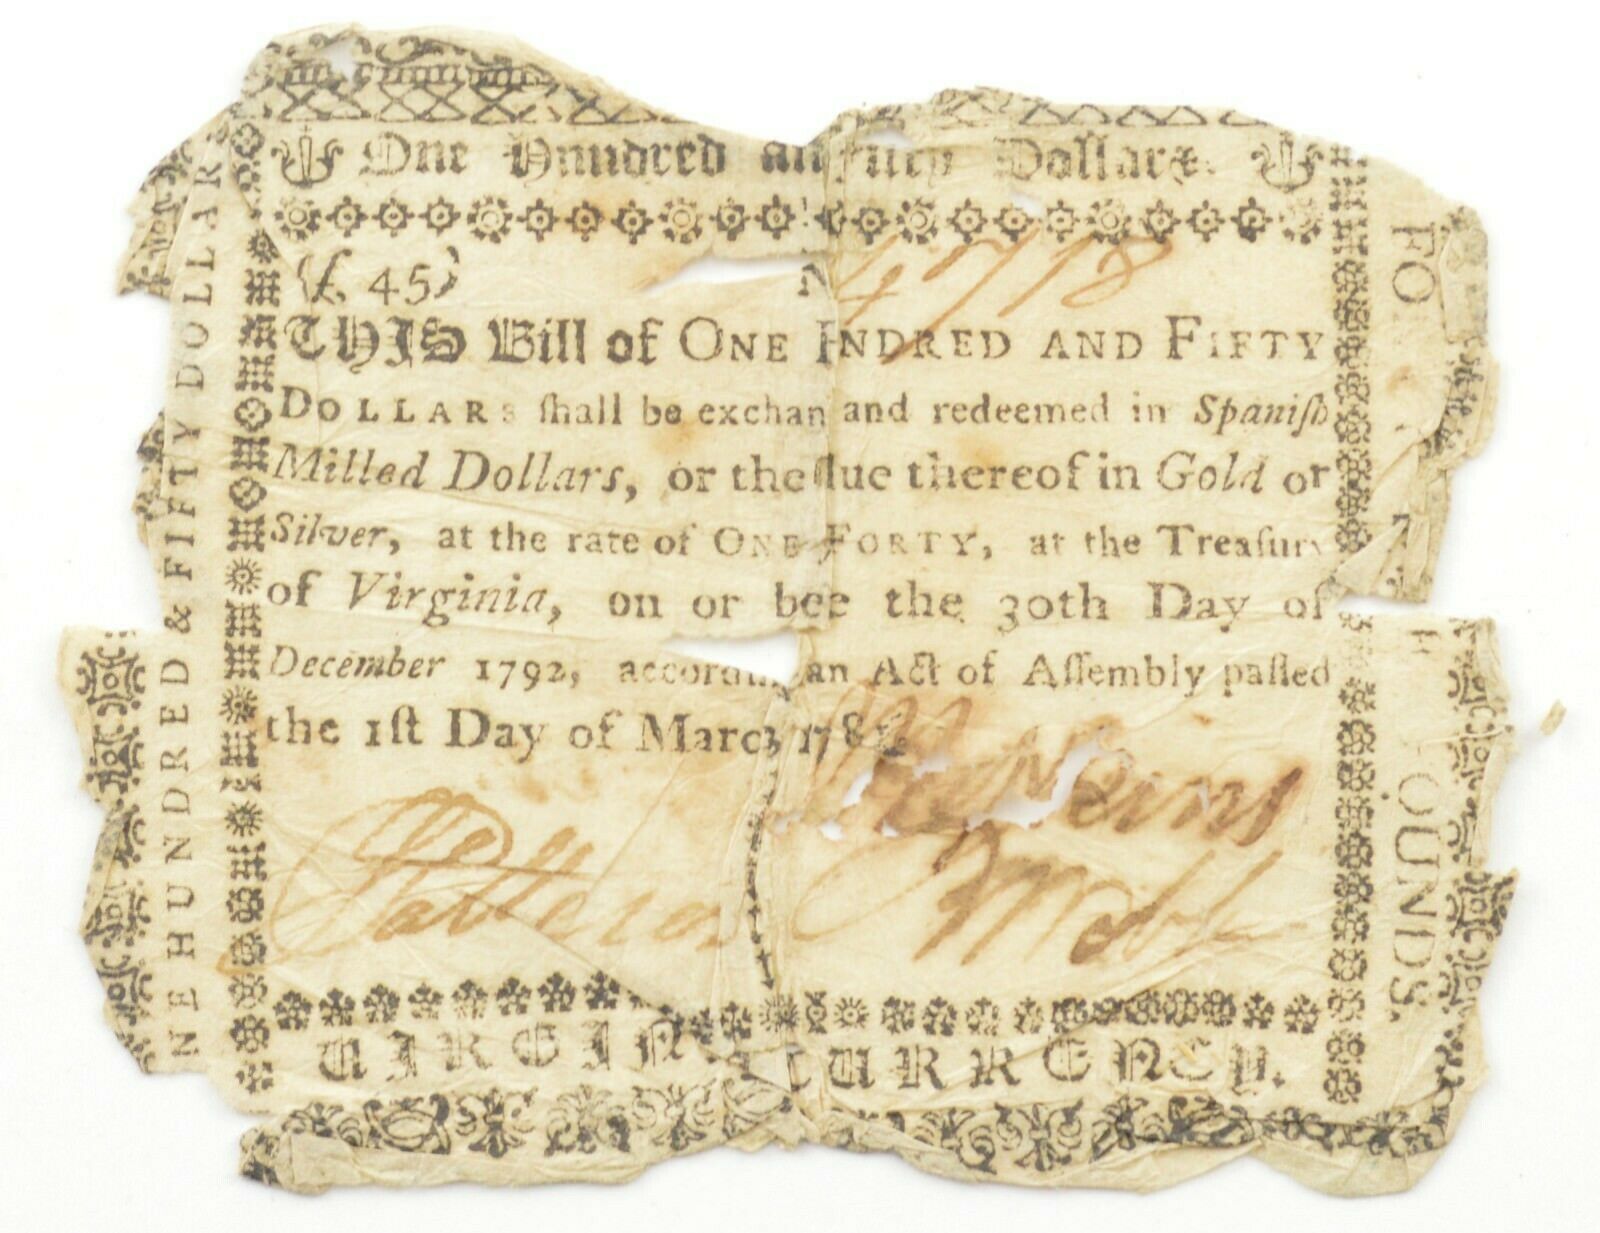 One Hundred an Fifty Dollars.
(£. 45) N 4718
THIS Bill of ONE HNDRED AND FIFTY
DOLLARS ſhall be exchan and redeemed in Spaniſh
Milled Dollars, or the lue thereof in Gold or
Silver, at the rate of ONE FORTY, at the Treaſury
of Virginia, on or bee the 30th Day of
December 1792, accordin an Act of Aſſembly paſſed
the 1ſt Day of Marc 178
VIRGIN CURRENCY.
NE HUNDRED & FIFTY DOLLAR
FO E OUNDS.